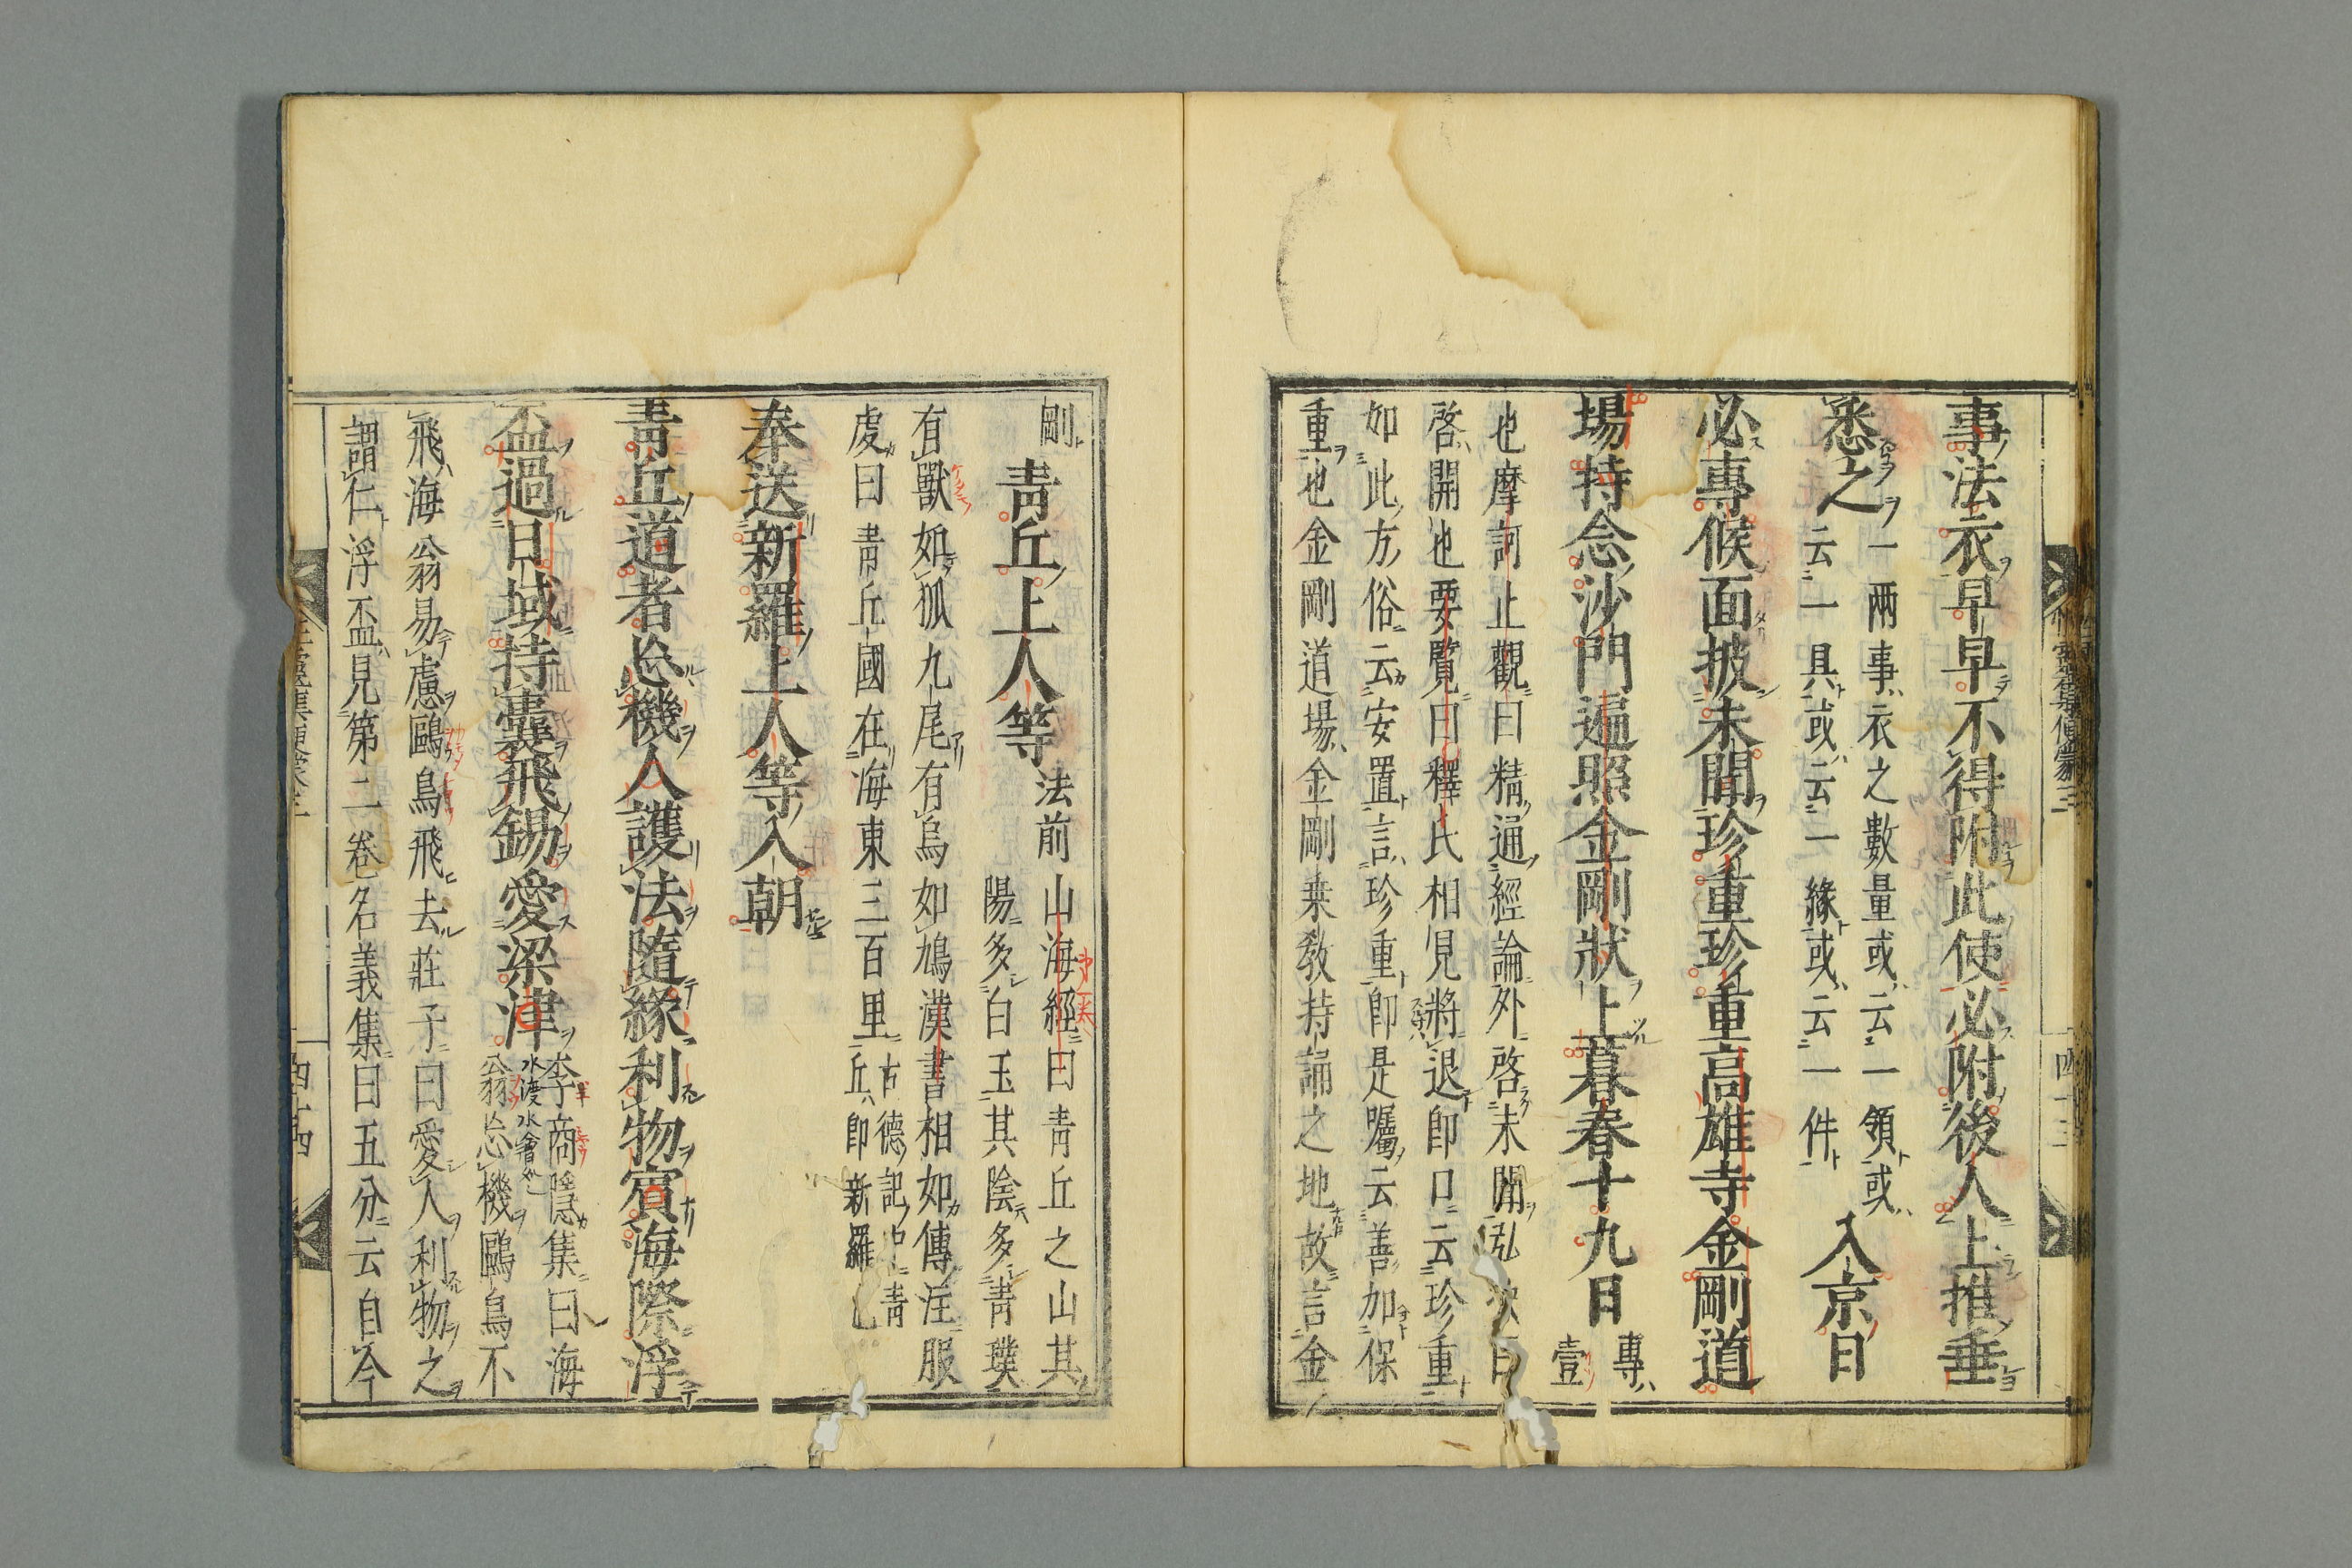 事法衣早早不得附此使必附後人上推垂
悉之一兩事衣之數量或云一領或
云一具或云一緣或云一件入京日
必專候面披未間珍重珍重高雄寺金剛道
場持念沙門遍照金剛狀上暮春十九日專
壹
也摩訶止觀曰精通經論外啓未聞
啓開也要覽曰釋氏相見將退即口云珍重
如此方俗云安置言珍重即是囑云善加保
重也金剛道場金剛乗教持誦之地故言金
剛
青丘上人等法前山海經曰青丘之山其
陽多白玉其陰多青䨼
有獸如狐九尾有鳥如鳩漢書相如傳注服
虔曰青丘國在海東三百里古德記曰青
丘即新羅也
奉送新羅上人等入朝
青丘道者忘機人護法隨緣利物賓海際浮
盃過日域持囊飛錫愛梁津李商隱集曰海
翁忘機鷗鳥不
飛海翁易慮鷗鳥飛去莊子曰愛人利物之
謂仁浮盃見第二卷名義集曰五分云自今